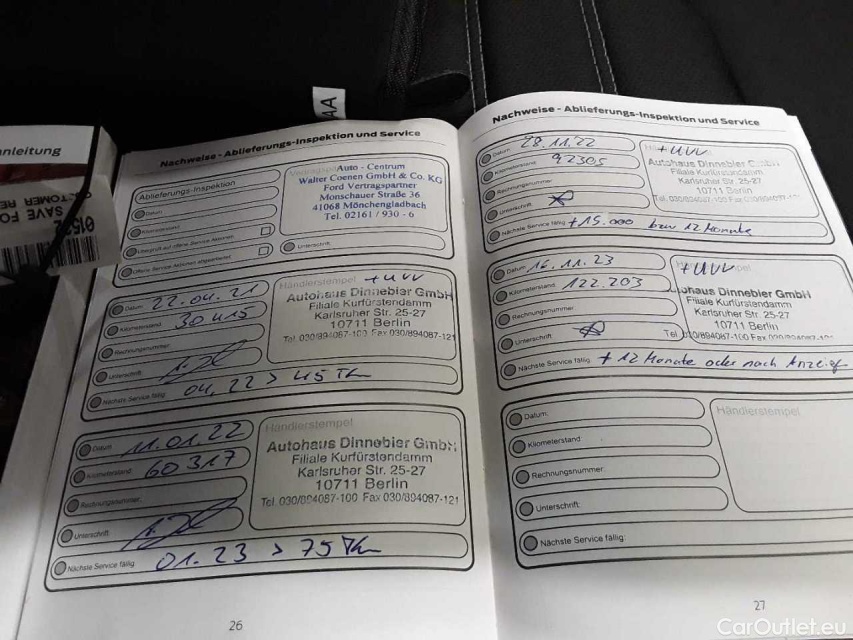 nleitung
AA
Nachweise - Ablieferungs-Inspektion und Service
Ablieferungs-Inspektion
Datum
Kilometerstand
Überprüft auf offene Service Aktionen
Offene Service Aktionen abgearbeitet
Auto - Centrum
Walter Coenen GmbH & Co. KG
Ford Vertragspartner
Monschauer Straße 36
41068 Mönchengladbach
Tel. 02161 / 930 - 6
Unterschrift
Datum: 22.04.21
Kilometerstand: 30415
Rechnungsnummer:
Unterschrift:
Nächste Service fällig: 04.22 > 45 TKm
Händlerstempel + UVV
Autohaus Dinnebier GmbH
Filiale Kurfürstendamm
Karlsruher Str. 25-27
10711 Berlin
Tel. 030/894087-100 Fax 030/894087-121
Datum: 11.01.22
Kilometerstand: 60317
Rechnungsnummer:
Unterschrift:
Nächste Service fällig: 01.23 > 75 TKm
Händlerstempel
Autohaus Dinnebier GmbH
Filiale Kurfürstendamm
Karlsruher Str. 25-27
10711 Berlin
Tel. 030/894087-100 Fax 030/894087-121
26
Nachweise - Ablieferungs-Inspektion und Service
Datum: 28.11.22
Kilometerstand: 92305
Rechnungsnummer:
Unterschrift:
Nächste Service fällig: + 15.000 bzw 12 Monate
+ UVV
Autohaus Dinnebier GmbH
Filiale Kurfürstendamm
Karlsruher Str. 25-27
10711 Berlin
Tel. 030/894087-100 Fax 030/894087-121
Datum: 16.11.23
Kilometerstand: 122.203
Rechnungsnummer:
Unterschrift:
Nächste Service fällig: + 12 Monate oder nach Anzeige
+ UVV
Autohaus Dinnebier GmbH
Filiale Kurfürstendamm
Karlsruher Str. 25-27
10711 Berlin
Tel. 030/894087-100 Fax 030/894087-121
Datum:
Kilometerstand:
Rechnungsnummer:
Unterschrift:
Nächste Service fällig:
Händlerstempel
27
CarOutlet.eu